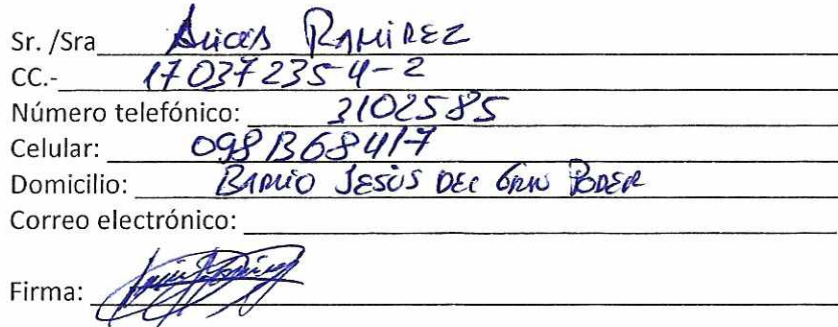 Sr. /Sra Alicia RAMIREZ
CC.- 170372354-2
Número telefónico: 3102585
Celular: 098 1368417
Domicilio: BARRIO JESÚS DEL GRAN PODER
Correo electrónico:
Firma: